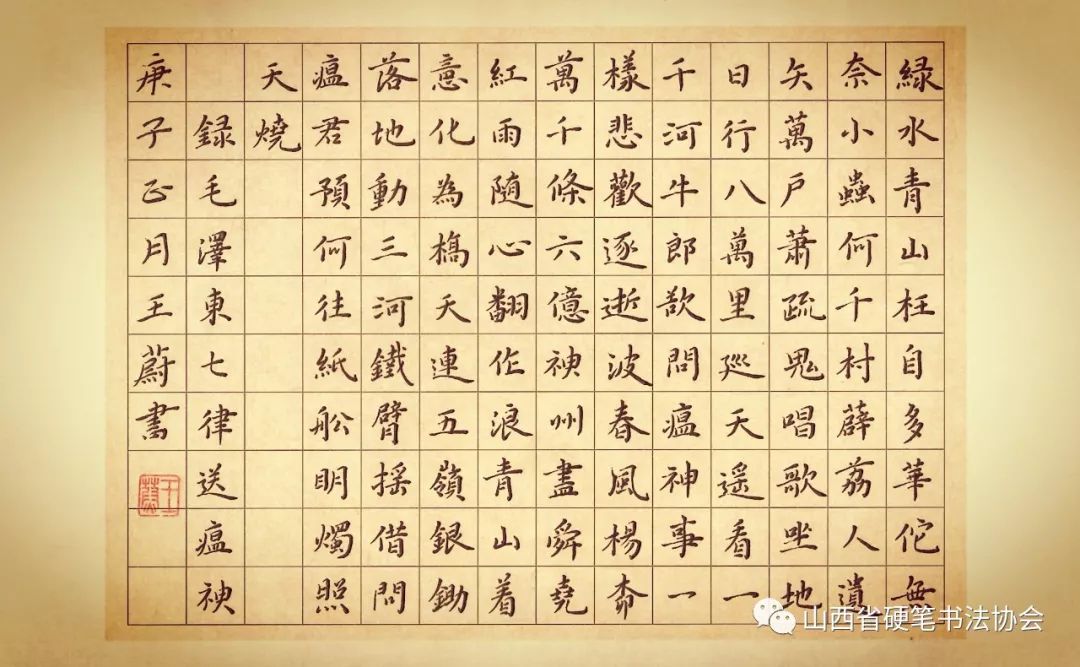 緑水青山枉自多華佗無
奈小蟲何千村薜荔人遺
矢萬戶蕭疏鬼唱歌坐地
日行八萬里巡天遥看一
千河牛郎欲問瘟神事一
樣悲歡逐逝波春風楊柳
萬千條六億神州盡舜堯
紅雨隨心翻作浪青山着
意化為橋天連五嶺銀鋤
落地動三河鐵臂摇借問
瘟君預何往紙船明燭照
天燒
録毛澤東七律送瘟神
庚子正月王蔚書
王蔚
山西省硬笔书法协会